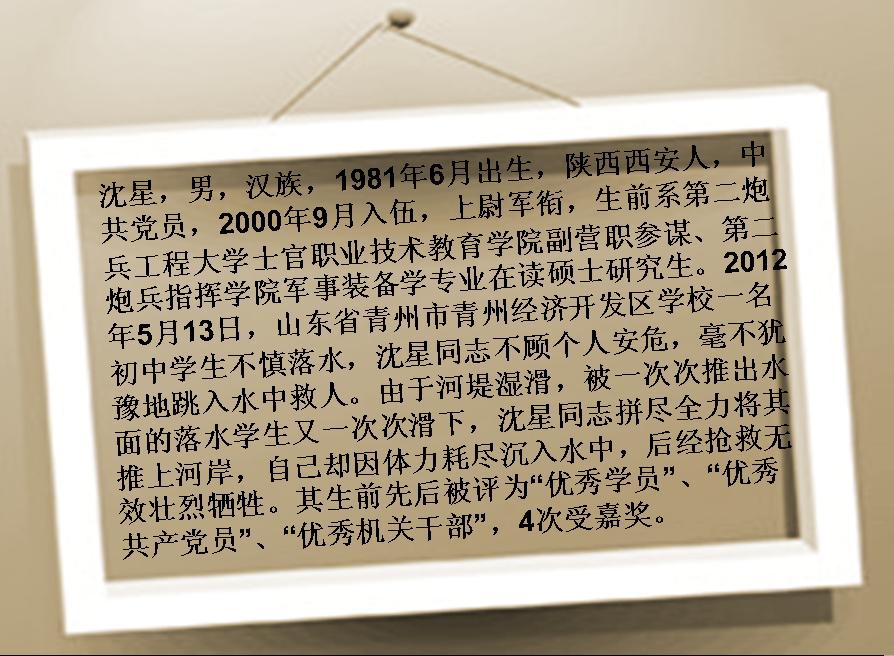 沈星，男，汉族，1981年6月出生，陕西西安人，中
共党员，2000年9月入伍，上尉军衔，生前系第二炮
兵工程大学士官职业技术教育学院副营职参谋、第二
炮兵指挥学院军事装备学专业在读硕士研究生。2012
年5月13日，山东省青州市青州经济开发区学校一名
初中学生不慎落水，沈星同志不顾个人安危，毫不犹
豫地跳入水中救人。由于河堤湿滑，被一次次推出水
面的落水学生又一次次滑下，沈星同志拼尽全力将其
推上河岸，自己却因体力耗尽沉入水中，后经抢救无
效壮烈牺牲。其生前先后被评为“优秀学员”、“优秀
共产党员”、“优秀机关干部”，4次受嘉奖。